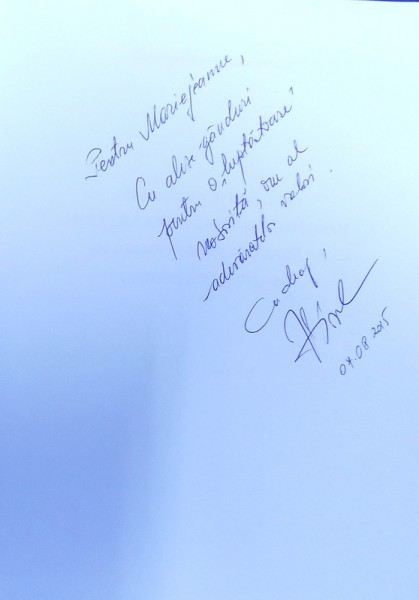 Pentru Mariejeanne,
Cu alese gânduri
pentru o luptătoare
neobosită, om al
adevăratelor valori.
Cu drag,
04.08.2015